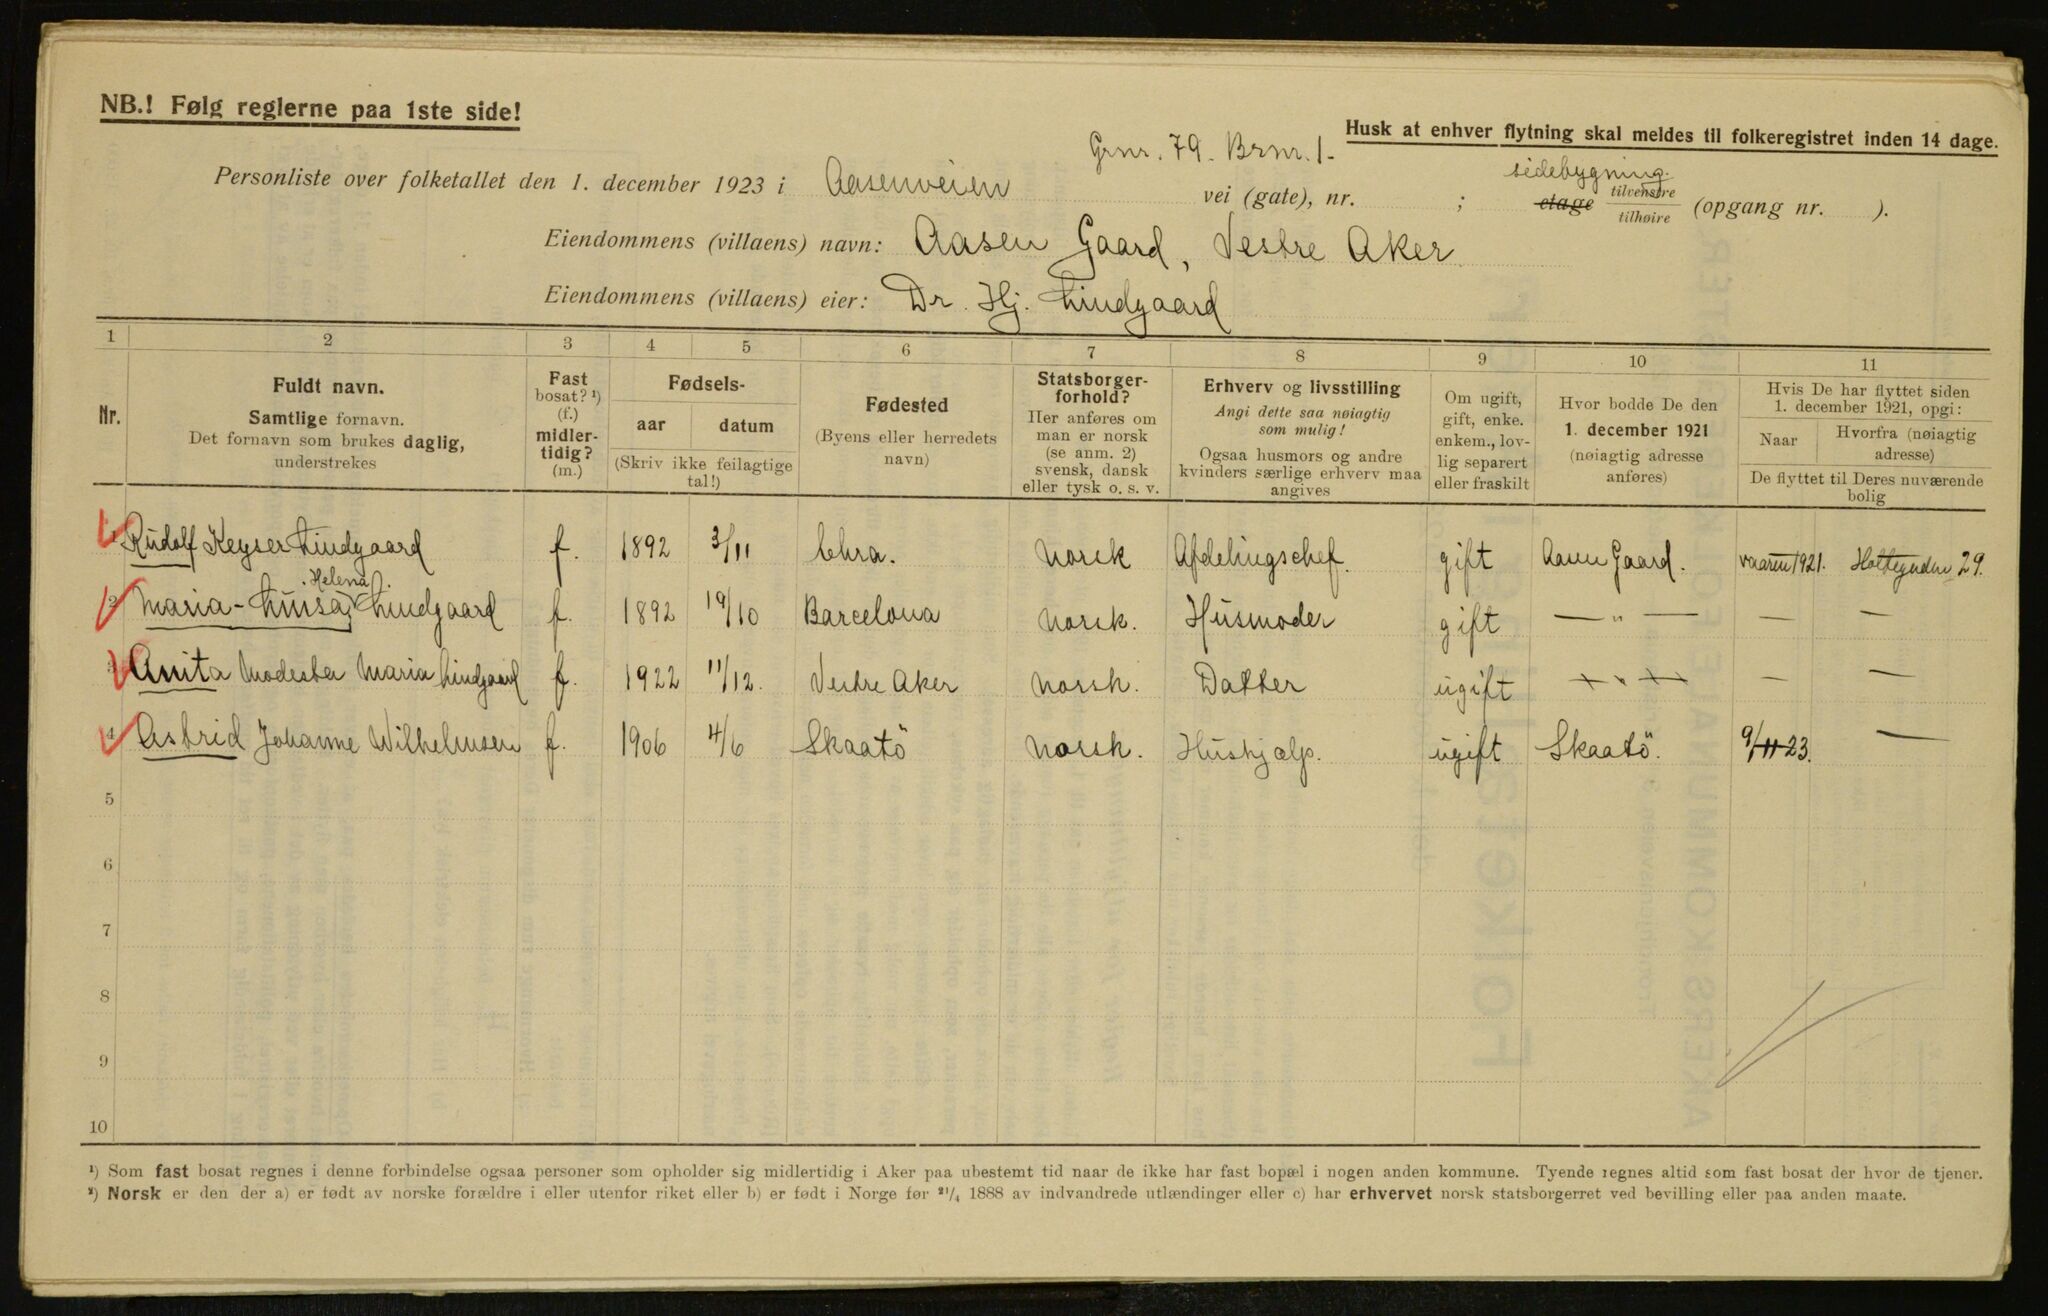 NB.! Følg reglerne paa 1ste side!
Husk at enhver flytning skal meldes til folkeregistret inden 14 dage.
Grnr. 79. Brnr. 1.
sidebygning.
Personliste over folketallet den 1. december 1923 i Aasenveien vei (gate), nr. ; etage tilvenstre tilhøire (opgang nr. ).
Eiendommens (villaens) navn: Aasen Gaard, Vestre Aker
Eiendommens (villaens) eier: Dr. Hj. Lindgaard
1 2 3 4 5 6 7 8 9 10 11
Nr.
Fuldt navn.
Samtlige fornavn.
Det fornavn som brukes daglig,
understrekes
Fast
bosat? ¹)
(f.)
midler-
tidig?
(m.)
Fødsels-
aar datum
(Skriv ikke feilagtige
tal!)
Fødested
(Byens eller herredets
navn)
Statsborger-
forhold?
Her anføres om
man er norsk
(se anm. 2)
svensk, dansk
eller tysk o. s. v.
Erhverv og livsstilling
Angi dette saa nøiagtig
som mulig!
Ogsaa husmors og andre
kvinders særlige erhverv maa
angives
Om ugift,
gift, enke.
enkem., lov-
lig separert
eller fraskilt
Hvor bodde De den
1. december 1921
(nøiagtig adresse
anføres)
Hvis De har flyttet siden
1. december 1921, opgi:
Naar
Hvorfra (nøiagtig
adresse)
De flyttet til Deres nuværende
bolig
1 Rudolf Keyser Lindgaard f. 1892 3/11 Chra. Norsk Afdelingschef. gift Aasen Gaard. vaaren 1921. 29.
Helena
2 Maria-Luisa Lindgaard f. 1892 19/10 Barcelona Norsk. Husmoder gift — „ — — —
3 Anita Modesta Maria Lindgaard f. 1922 11/12. Vestre Aker Norsk. Datter ugift — „ — — —
4 Astrid Johanne Wilhelmsen f. 1906 4/6 Skaatö Norsk. Hushjælp. ugift Skaatö. 9/11 23. —
5
6
7
8
9
10
¹) Som fast bosat regnes i denne forbindelse ogsaa personer som opholder sig midlertidig i Aker paa ubestemt tid naar de ikke har fast bopæl i nogen anden kommune. Tyende regnes altid som fast bosat der hvor de tjener.
²) Norsk er den der a) er født av norske forældre i eller utenfor riket eller b) er født i Norge før ²¹/₄ 1888 av indvandrede utlændinger eller c) har erhvervet norsk statsborgerret ved bevilling eller paa anden maate.